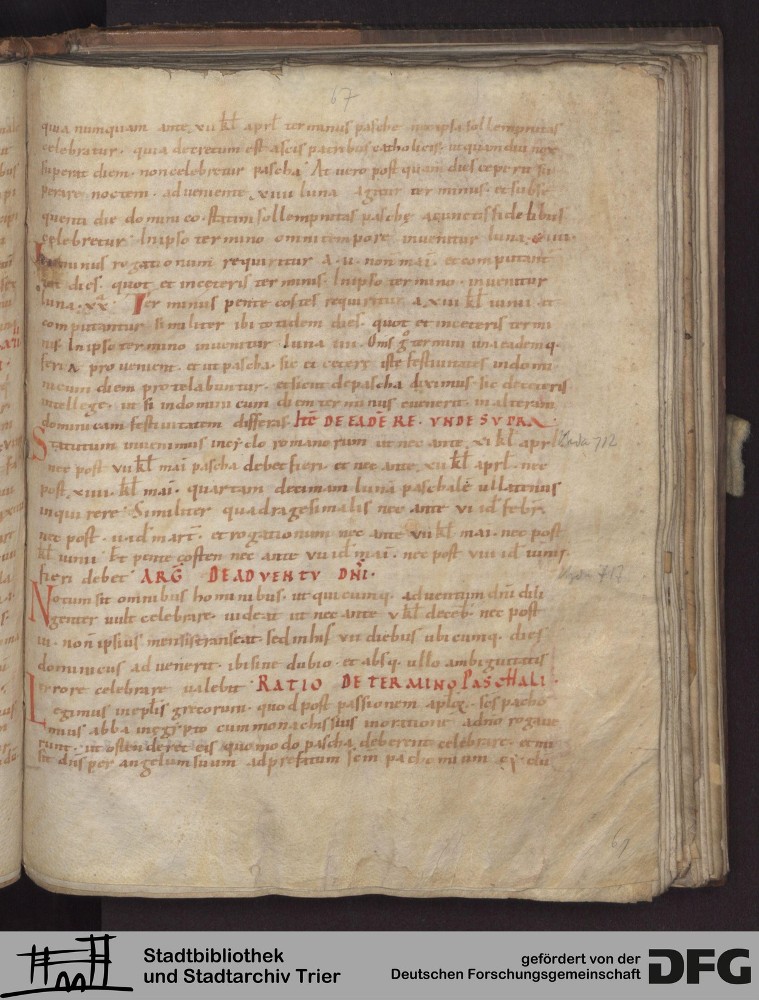 67
quia numquam ante xii kł aprł terminus pasche nec ipsa sollempnitas
celebratur. quia decretum est a scis patribus catholicis. ut quamdiu nox
superat diem. non celebretur pascha. At vero post quam dies ceperit su
perare noctem. adveniente xiiii luna agitur terminus. et subse
quenti die dominico. statim sollempnitas paschę a cunctis fidelibus
celebretur. In ipso termino omni tempore invenitur luna
Terminus rogationum requiritur a u non mai. et computant
dies. quot et in ceteris terminis. In ipso termino invenitur
luna. xx. Ter minus pente costes requiritur a xiii kł iunii et
computantur similiter ibi totidem dies. quot et in ceteris termi
nis. In ipso termino invenitur luna iiii. Oms g termini una eademq.
feria provenient. et ut pascha. sic et cetere iste festivitates in domi
nicum diem protelabuntur. et sicut de pascha diximus. sic de ceteris
intellege. ut si in dominicum diem terminus evenerit in alteram
dominicam festivitatem differas. ITE DE EADE RE. UNDE SUPRA.
Statutum invenimus in cyclo romanorum ut nec ante xi kł aprł
nec post vii kł mai pascha debet fieri. et nec ante xii kł aprł. nec
post xiiii. kł mai. quartam decimam luna paschale ullatenus
inquirere. Similiter quadragesimalis nec ante vi id febr.
nec post id mart. et rogationum nec ante vii kł mai. nec post
kł iunii. Et pente costen nec ante vii id mai. nec post viii id iunii.
fieri debet. ARG DE ADVENTU DNI.
Notum sit omnibus hominibus. ut quicunq. adventum dni dili
genter vult celebrare. videat ut nec ante v kł deceb. nec post
iii. non ipsius mensis transeat. sed in his vii diebus ubicumq. dies
dominicus advenerit. ibi sine dubio. et absq. ullo ambiguitatis
errore celebrare valebit. RATIO DE TERMINO PASCHALI.
Legimus in eplis grecorum. quod post passionem aplicā. scs pacho
mius abba in ęgypto cum monachis suis in oratione adno rogave
runt. ut ostenderet eis quomodo pascha deberent celebrare. et mi
sit dns per angelum suum ad prefatum scm pachomium
Stadtbibliothek
und Stadtarchiv Trier
gefördert von der
Deutschen Forschungsgemeinschaft
DFG